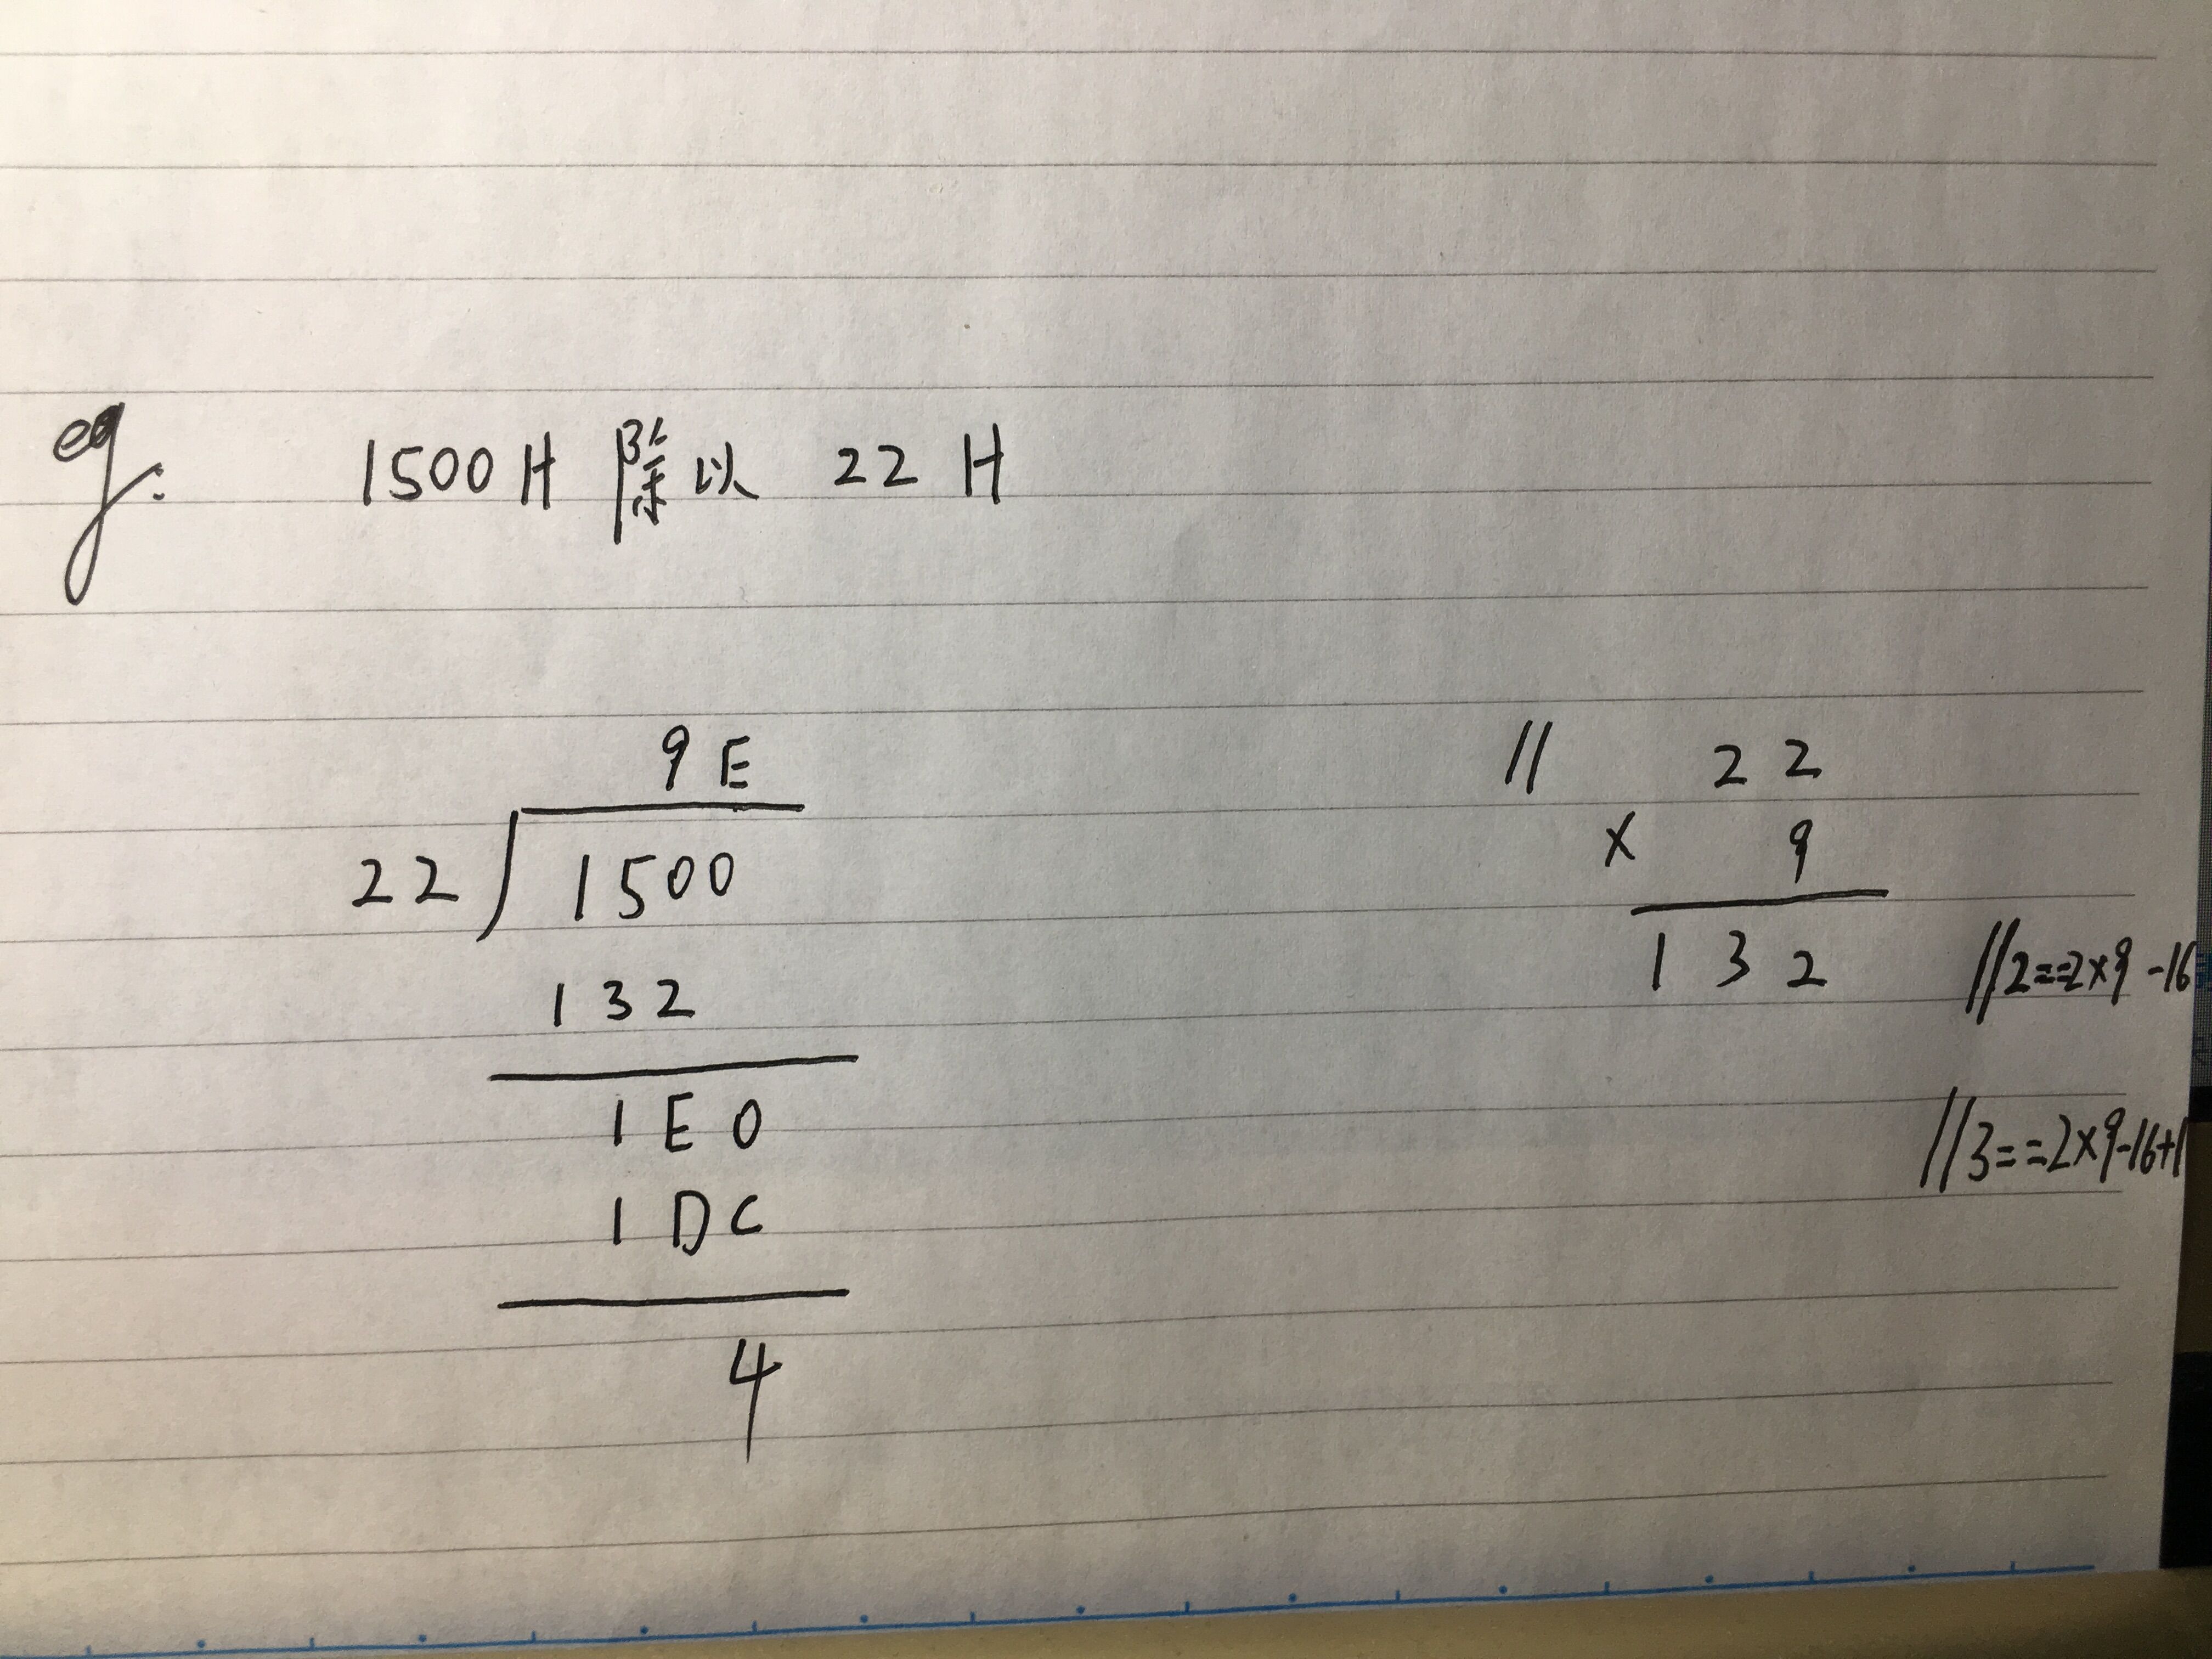 eg. 1500H 除以 22 H
9E
22 1500
132
1E0
1DC
4
// 22
x 9
132 //2==2x9-16
//3==2x9-16+1